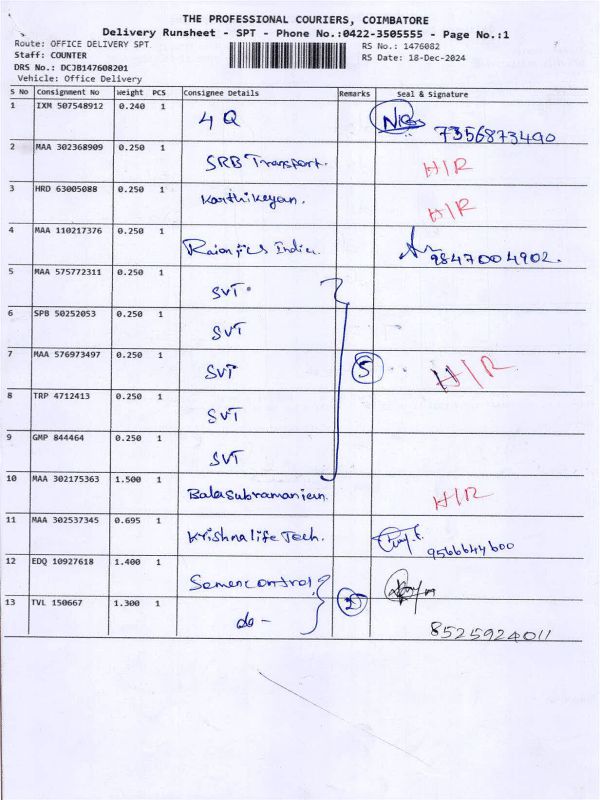 THE PROFESSIONAL COURIERS, COIMBATORE
Delivery Runsheet - SPT - Phone No.:0422-3505555 - Page No.:1
Route: OFFICE DELIVERY SPT
RS No.: 1476082
Staff: COUNTER
RS Date: 18-Dec-2024
DRS No.: DCJB147608201
Vehicle: Office Delivery
S No Consignment No Weight PCS Consignee Details Remarks Seal & Signature
1 IXM 507548912 0.240 1 4 Q 7356873490
2 MAA 302368909 0.250 1 SRB Transport. H/R
3 HRD 63005088 0.250 1 Karthikeyan. H/R
4 MAA 110217376 0.250 1 India 9847004902.
5 MAA 575772311 0.250 1 SVT
6 SPB 50252053 0.250 1 SVT
7 MAA 576973497 0.250 1 SVT 5 H/R
8 TRP 4712413 0.250 1 SVT
9 GMP 844464 0.250 1 SVT
10 MAA 302175363 1.500 1 Balasubramanian. H/R
11 MAA 302537345 0.695 1 Krishnalife Tech. 9566644600
12 EDQ 10927618 1.400 1 Semencontrol 2
13 TVL 150667 1.300 1 do - 8525924011